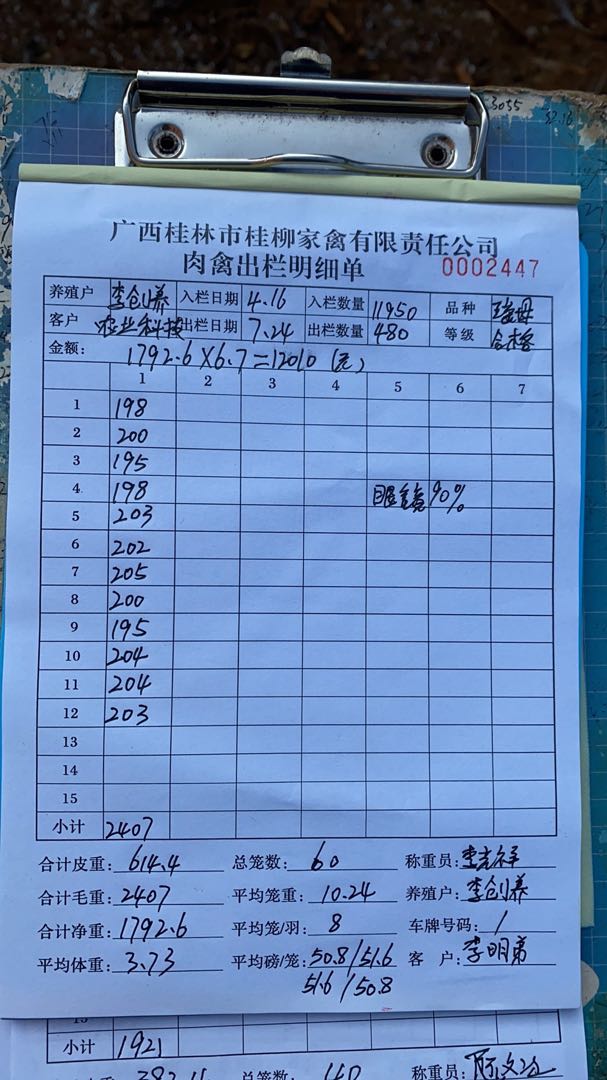 3055
广西桂林市桂柳家禽有限责任公司
肉禽出栏明细单 0002447
养殖户 李创养 入栏日期 4.16 入栏数量 11950 品种 瑶母
客户 农业科技 出栏日期 7.24 出栏数量 480 等级 合格
金额: 1792.6×6.7=12010(元)
1 2 3 4 5 6 7
1 198
2 200
3 195
4 198 眼镜90%
5 203
6 202
7 205
8 200
9 195
10 204
11 204
12 203
13
14
15
小计 2407
合计皮重: 614.4 总笼数: 60 称重员: 李光祥
合计毛重: 2407 平均笼重: 10.24 养殖户: 李创养
合计净重: 1792.6 平均笼/羽: 8 车牌号码: /
平均体重: 3.73 平均磅/笼: 50.8/51.6 客户: 李明弟
51.6/50.8
15
小计 1921
总笼数: 称重员: